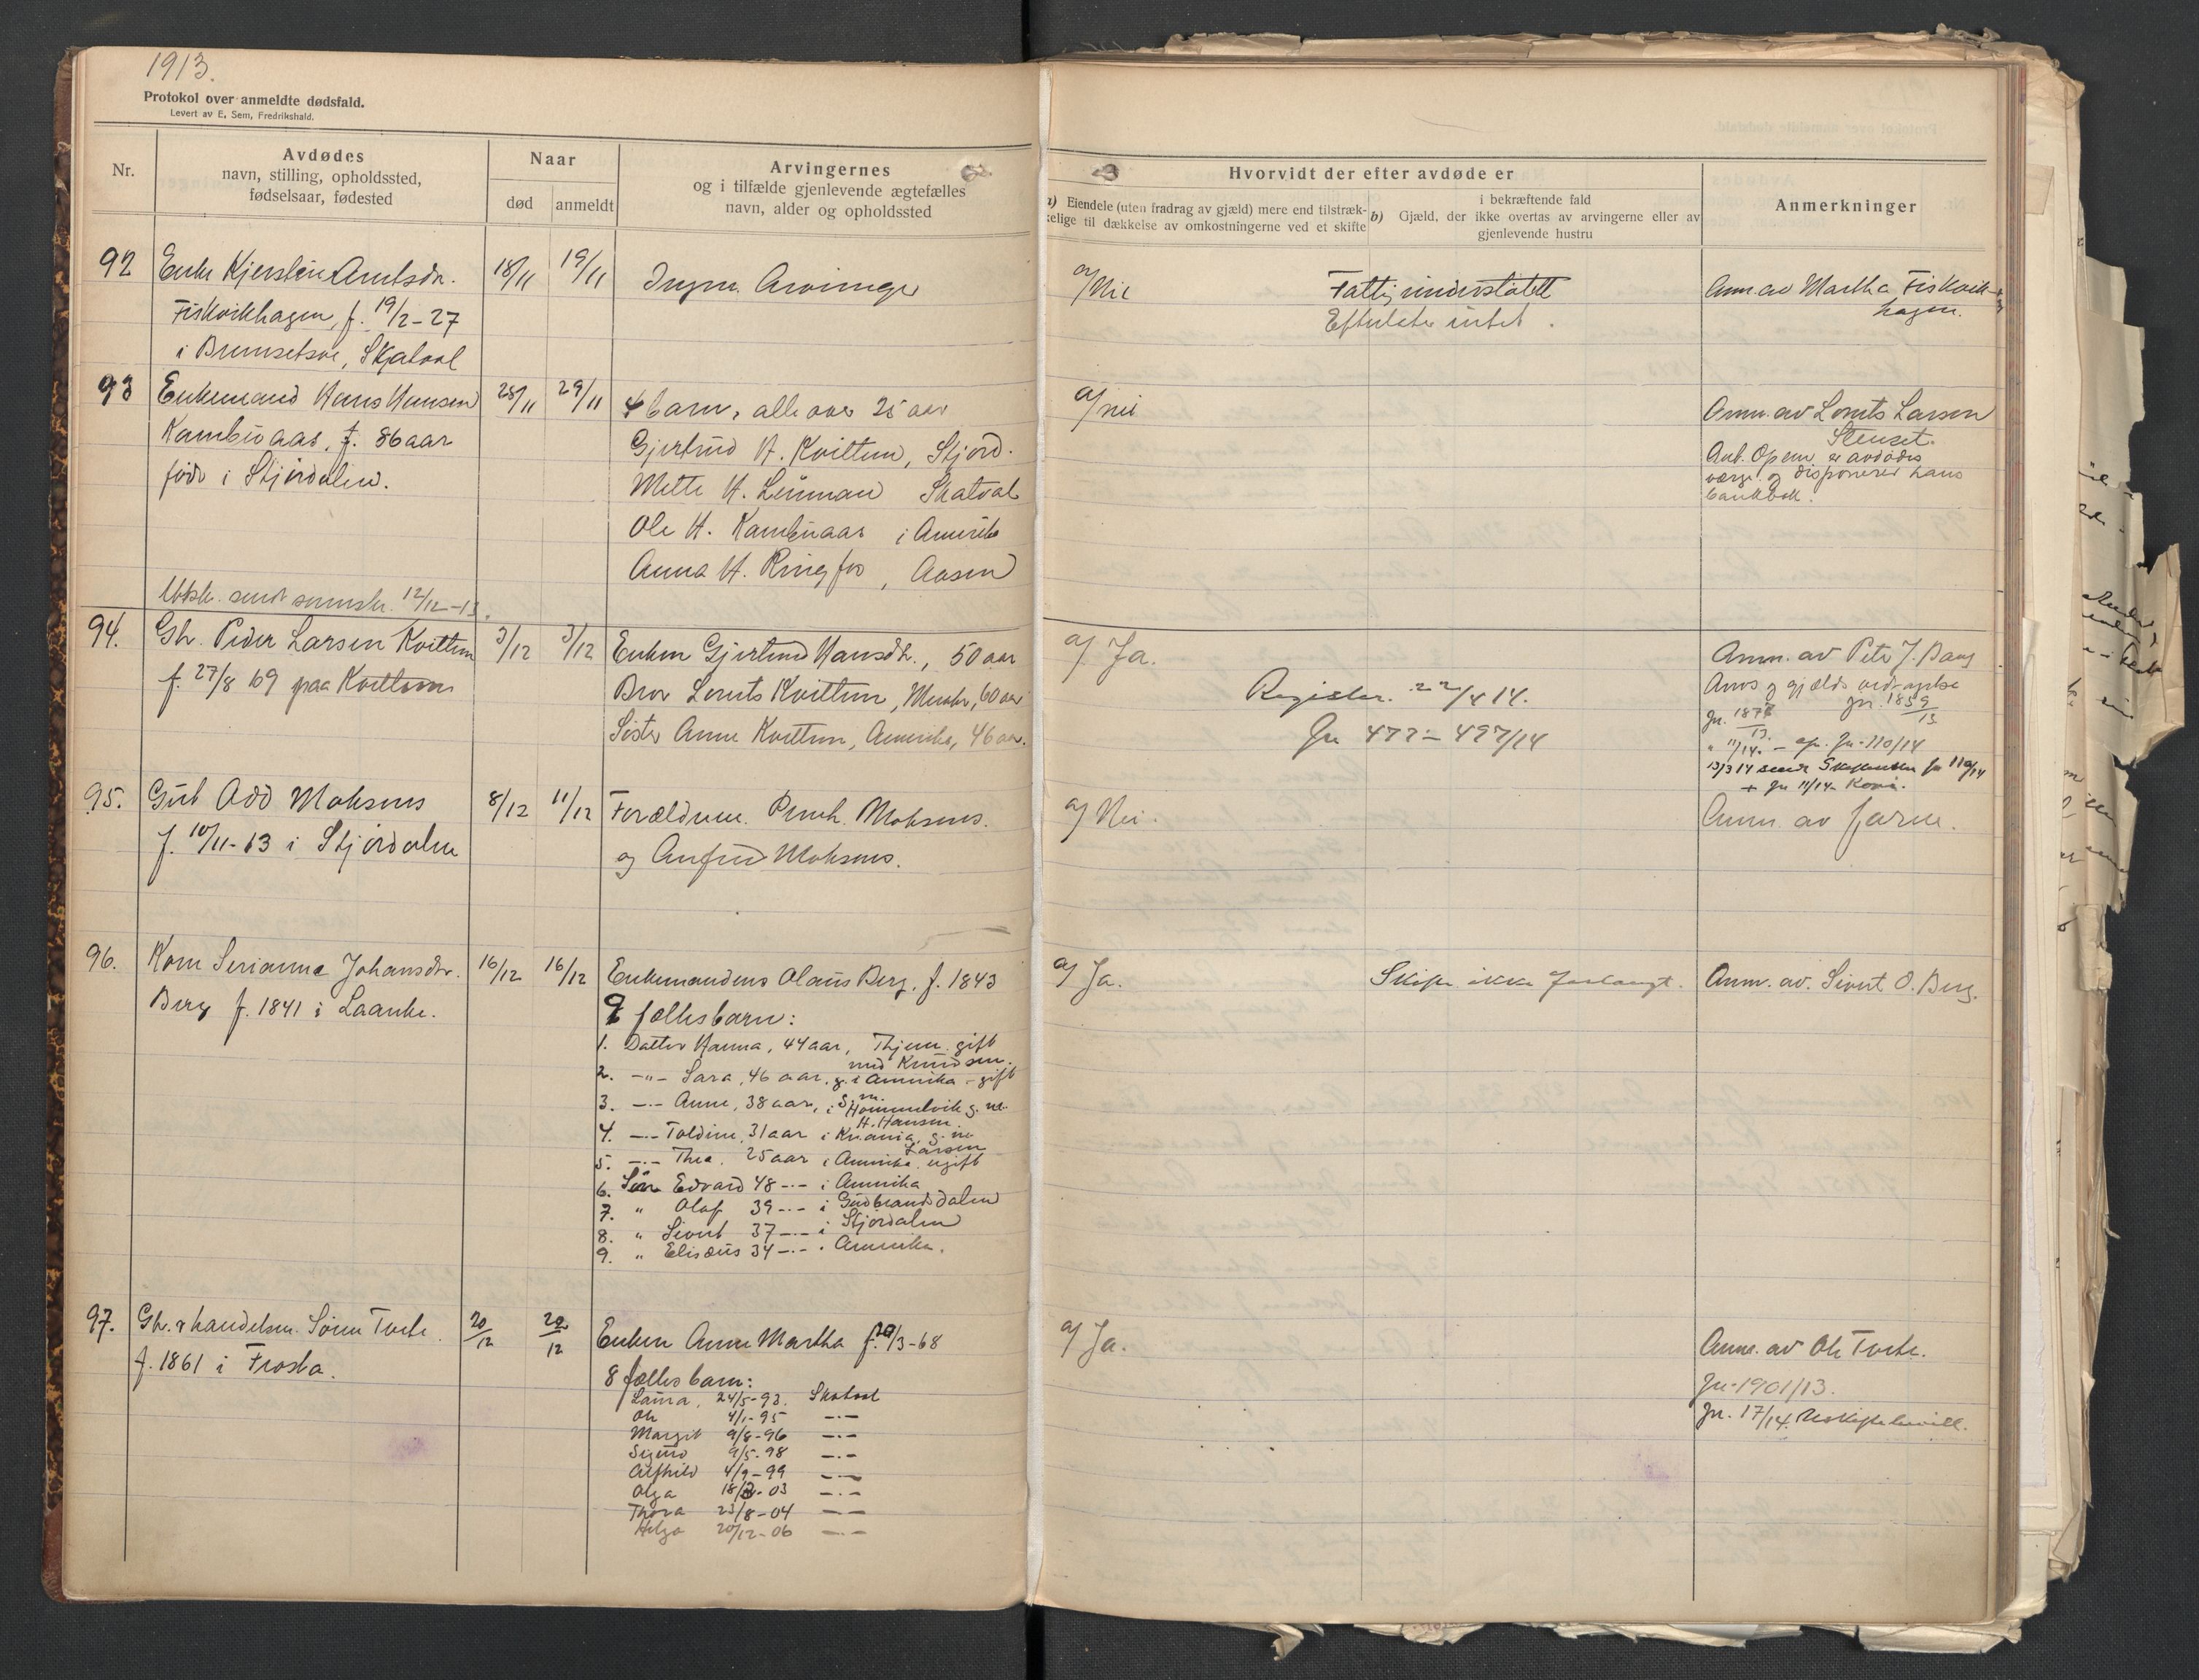 1913.
Protokol over anmeldte dødsfald.
Levert av E. Sem, Fredrikshald.
Nr.
Avdødes
navn, stilling, opholdssted,
fødselsaar, fødested
Naar
død
anmeldt
Arvingernes
og i tilfælde gjenlevende ægtefælles
navn, alder og opholdssted
92
Enke Kjersten Arntsdr.
Fiskvikhagen, f. 19/2-27
i Skatval
18/11
19/11
Ingen Arvinger
93
Enkemand Hans Hansen
Kambuaas, f. 86 aar
født i Stjørdalen.
28/11
29/11
4 barn, alle over 25 aar
Gjertrud H. Kvittem, Stjørd.
Mette H. Leinman Skatval
Ole H. Kambuaas i Amerika
Anna H. Ringfor, Aasen
Utskr. sendt 12/12-13.
94.
Gbr. Peder Larsen Kvittem
f. 27/8 69 paa Kvittem
3/12
3/12
Enken Gjertrud Hansdtr., 50 aar
Bror Lornts Kvittem, 60 aar
Søster Anne Kvittem, Amerika, 46 aar.
95.
Gut Odd Moksnes
f. 10/11-13 i Stjørdalen
8/12
11/12
Forældrene. Moksnes.
og Moksnes.
96.
Kone Serianna Johansdtr.
Berg f. 1841 i Laanke.
16/12
16/12
Enkemanden Olaus Berg. f. 1843
9 fællesbarn:
1. Datter Hanna, 44 aar, gift
med Knudsen.
2. -"- Sara, 46 aar, g. i Amerika - gift
3. -"- Anne, 38 aar, i Hommelvik g. m.
H. Hansen
4. -"- Toldine, 31 aar i Kr.ania, g. m.
Larsen
5. -"- Thea. 25 aar i Amerika. ugift
6. Søn Edvard 48 -"- i Amerika
7. " Olaf 39 -"- i Gudbrandsdalen
8. " Sivert 37 -"- i Stjørdalen
9. " Elisæus 34 -"- i Amerika.
97.
Gbr. & handelsm. Søren Tvete.
f. 1861 i Frosta.
20/12
20/12
Enken Anne Martha f. 20/3-68
8 fælles barn:
Laura, 24/5-93. Skatval
Ole 4/1-95 -"-
Margit 9/8-96 -"-
Sigurd 9/5-98 -"-
Alfhild 4/9-99 -"-
Olga 18/2-03 -"-
Thora 23/8-04 -"-
Helga 20/12-06 -"-
Hvorvidt der efter avdøde er
a) Eiendele (uten fradrag av gjæld) mere end tilstræk-
kelige til dækkelse av omkostningerne ved et skifte
i bekræftende fald
b) Gjæld, der ikke overtas av arvingerne eller av
gjenlevende hustru
Anmerkninger
a/ Nei
Fattigunderstøttet
Efterlater intet.
Anm. av Martha Fiskvik-
hagen.
a/ nei
Anm. av Lornts Larsen
Stenset.
Ant. Opem er avdødes
værge og disponerer hans
bankbok.
a/ Ja.
Registr. 22/4 14.
Jn 477 - 497/14
Anm. av Peter J. Bang
Arvs og gjælds
Jn. 1859/13
" 11/14. - Jn. 110/14
13/3 14 sendt
+ Jn 11/14
a/ Nei.
Anm. av faren.
a/ Ja.
Skifte ikke forlangt.
Anm. av. Sivert O. Berg.
a/ Ja.
Anm. av Ole Tvete.
Jn. 1901/13.
Jn. 17/14. Uskiftebevill.